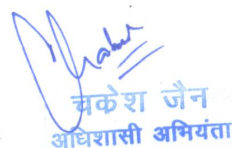 चक्रेश जैन
अधिशासी अभियंता